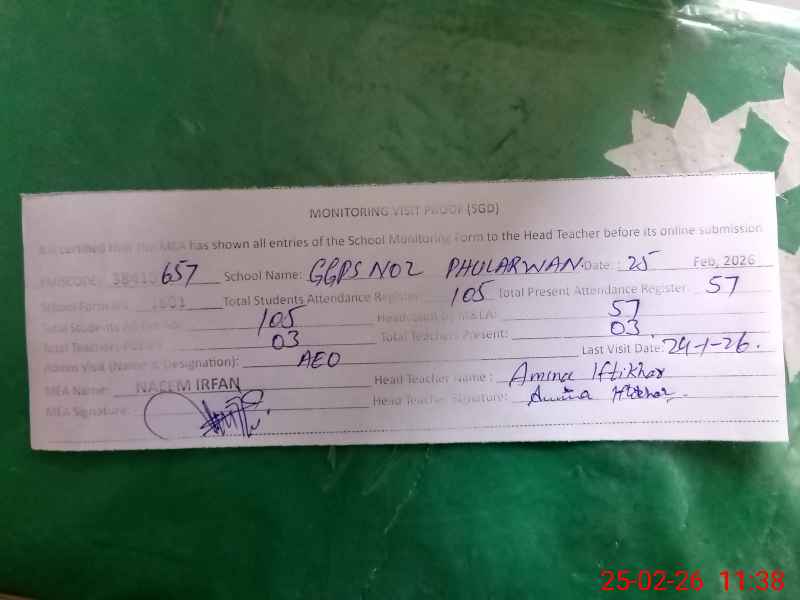 MONITORING VISIT PROOF (SGD)
It is certified that the MEA has shown all entries of the School Monitoring Form to the Head Teacher before its online submission
EMISCODE: 38410657 School Name: GGPS NO2 PHULARWAN Date: 25 Feb, 2026
School Form No: Total Students Attendance Register: 105 Total Present Attendance Register: 57
Total Students 105 Headcount by MEA: 57
Total Teachers 03 Total Teachers Present: 03
Admin Visit (Name & Designation): AEO Last Visit Date: 24-1-26.
MEA Name: NAEEM IRFAN Head Teacher Name: Amina Iftikhar
MEA Signature: Head Teacher Signature: Amina Iftikhar
25-02-26 11:38